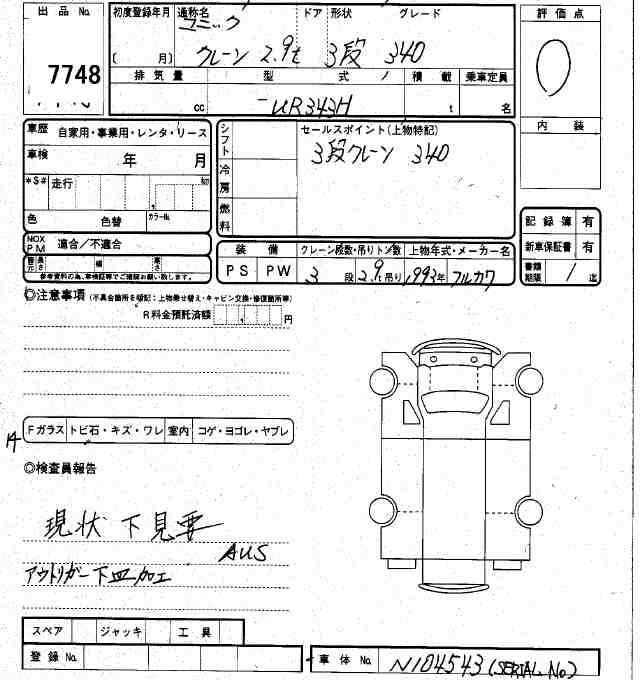 出品 No.
7748
初度登録年月 通称名 ドア 形状 グレード
ユニック
〔 月〕 クレーン 2.9t 3段 340
排気量 型式 / 積載 乗車定員
cc -UR343H t 名
評価点
0
内装
車歴 自家用・事業用・レンタ・リース
車検 年 月
*$# 走行 km
色 色替 カラーNo.
NOX PM 適合/不適合
長さ 幅 高さ
参考資料の為、車検証等でご確認お願い致します。
シフト
冷房
燃料
セールスポイント(上物特記)
3段クレーン 340
装備 クレーン段数・吊りトン数 上物年式・メーカー名
PS PW 3段 2.9t吊り 1993年 フルカワ
記録簿 有
新車保証書 有
書類期限 / 迄
◎注意事項 (不具合箇所を明記:上物乗せ替え・キャビン交換・修復箇所等)
R料金預託済額 円
Fガラス トビ石・キズ・ワレ 室内 コゲ・ヨゴレ・ヤブレ
◎検査員報告
現状 下見要
AUS
アウトリガー下皿加工
スペア ジャッキ 工具
登録 No. 車体 No. N104543 (SERIAL No)